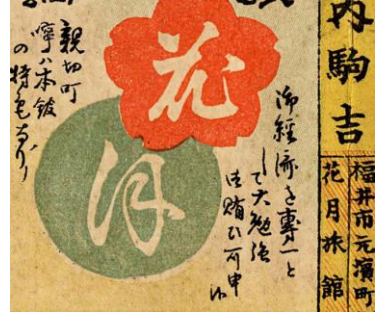 内駒吉
福井市元濱町
花月旅館
花
月
御経済を専一と
して大勉強
仕賄ひ可申候
親切町
寧ハ本館
の特色なり